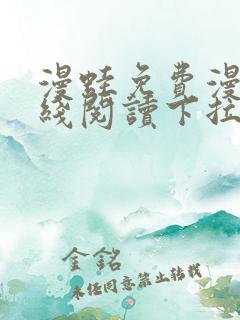 漫蛙免費漫
綫閱讀下拉
金銘
未经同意禁止转载